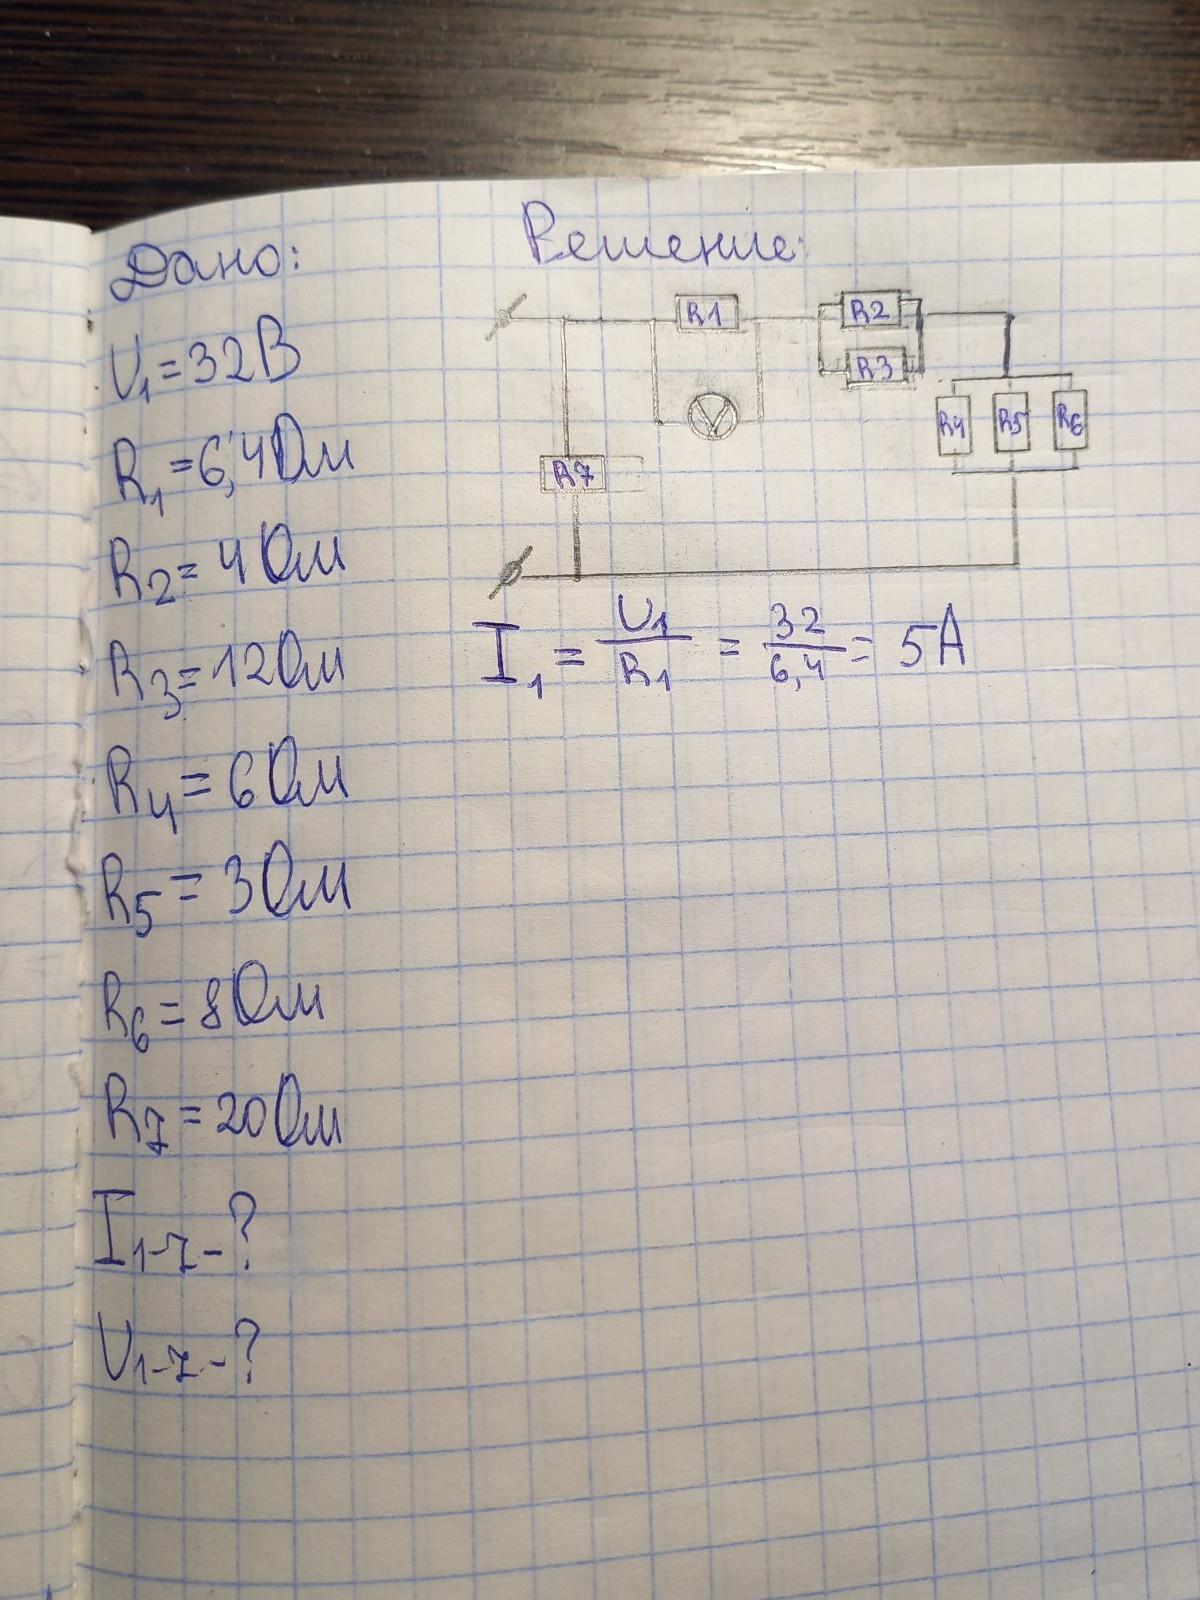 Дано:
U1=32В
R1=6,4Ом
R2=4Ом
R3=12Ом
R4=6Ом
R5=3Ом
R6=8Ом
R7=20Ом
I1-7-?
U1-7-?
Решение:
R1
R2
R3
V
R4 R5 R6
R7
I1 = U1/R1 = 32/6,4 = 5А